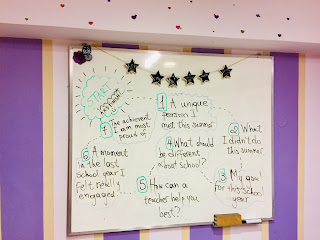 START
1 A unique
person I
met this summer
2 What
I didn't do
this summer
3 My goal
for this school
year
4 What should
be different
about school?
5 How can a
teacher help you
best?
6 A moment
in the last
school year I
felt really
engaged
7 The achievement
I am most
proud of